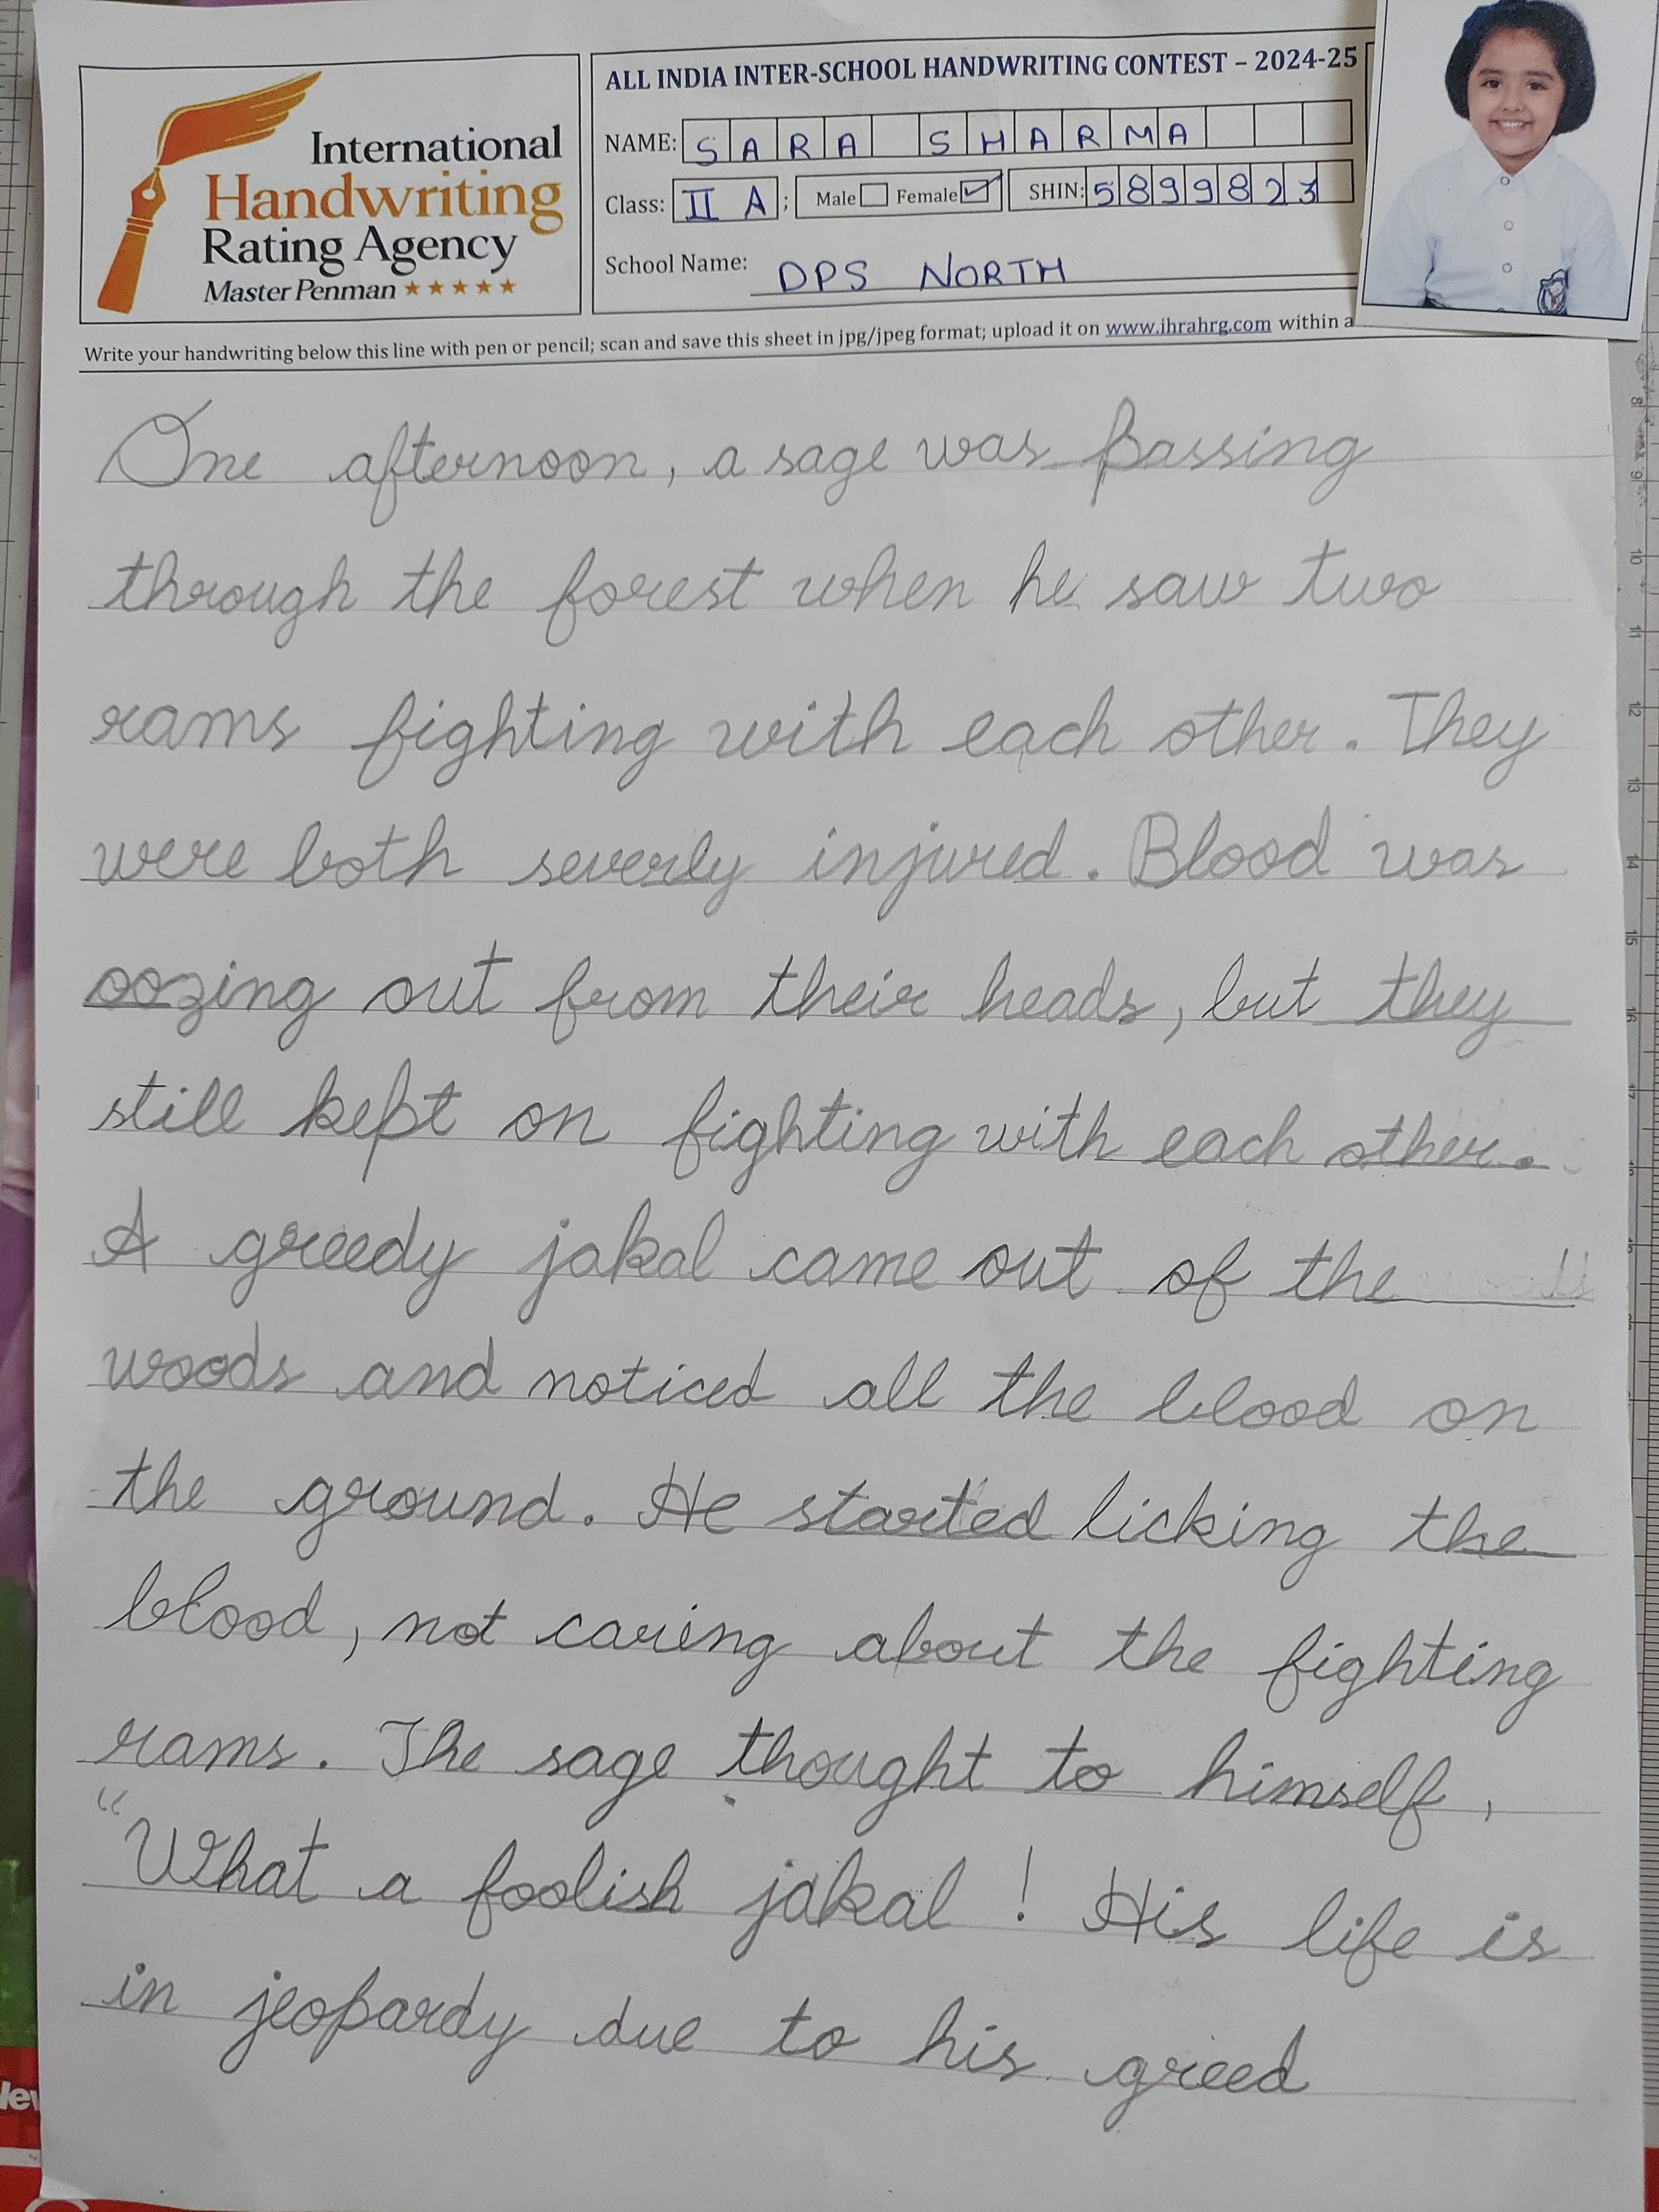 International
Handwriting
Rating Agency
Master Penman ★★★★★
ALL INDIA INTER-SCHOOL HANDWRITING CONTEST – 2024-25
NAME: SARA SHARMA
Class: II A ; Male Female SHIN: 5899823
School Name: DPS NORTH
Write your handwriting below this line with pen or pencil; scan and save this sheet in jpg/jpeg format; upload it on www.ihrahrg.com within a
One afternoon, a sage was passing
through the forest when he saw two
rams fighting with each other. They
were both severly injured. Blood was
oozing out from their heads, but they
still kept on fighting with each other.
A greedy jakal came out of the
woods and noticed all the blood on
the ground. He started licking the
blood, not caring about the fighting
rams. The sage thought to himself,
“What a foolish jakal! His life is
in jeopardy due to his greed